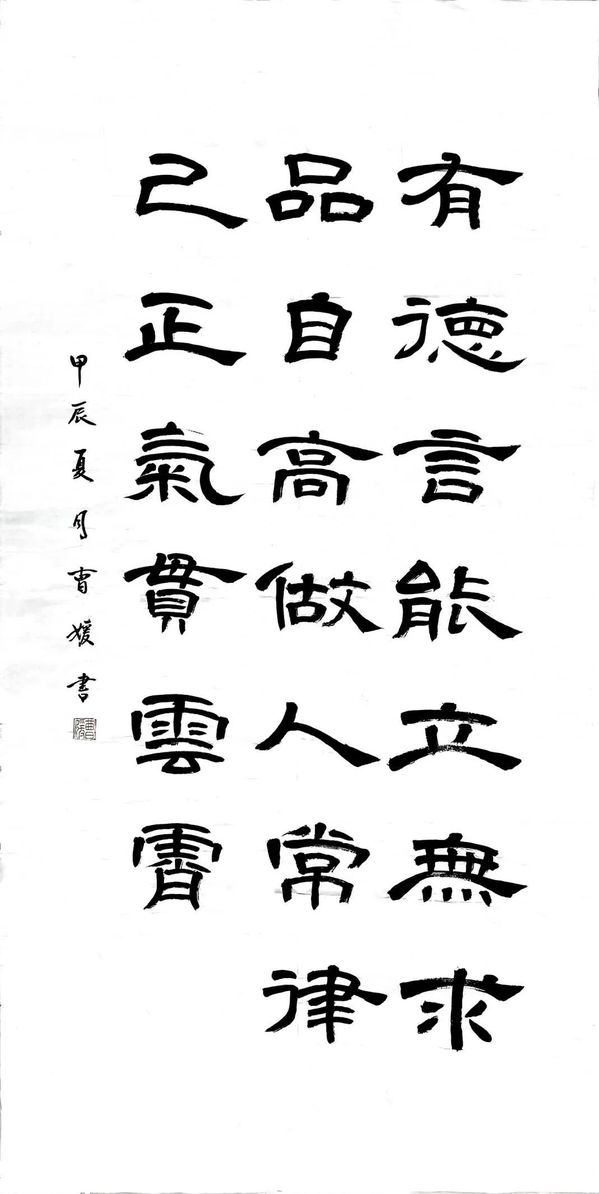 有德言能立無求
品自高做人常律
己正氣貫雲霄
甲辰夏月曹媛書